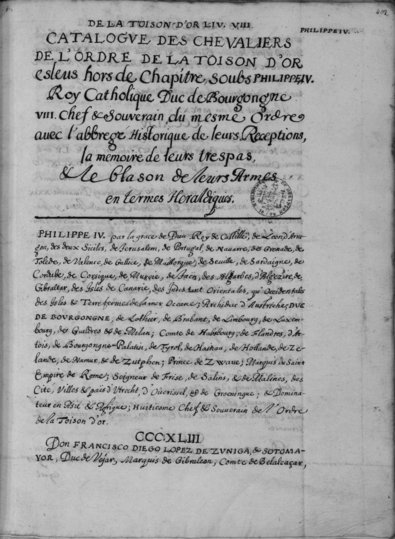 DE LA TOISON D'OR LIV. VIII.
PHILIPPE IV.
CATALOGVE DES CHEVALIERS
DE L'ORDRE DE LA TOISON D'OR
esleus hors de Chapitre, soubs PHILIPPE IV.
Roy Catholique Duc de Bourgongne
VIII. Chef & Souverain du mesme Ordre
avec l'abbregé Historique de leurs Receptions,
la memoire de leurs trespas,
& le blason de leurs Armes
en termes Heraldiques.
PHILIPPE IV. par la grace de Dieu Roy de Castille, de Leon, d'Arra-
gon, des deux Siciles, de Jerusalem, de Portugal, de Navarre, des Grenade, de
Tolede, de Valence, de Galice, de Maillorque, de Seuille, de Sardaigne, de
Cordube, de Corsique, de Murcie, de Jaen, des Algarbes, d'Algezire, de
Gibraltar, des Isles de Canarie, des Indes tant Orientales, qu'Occidentales
des Isles & Terre ferme de la mer Oceane; Archiduc d'Austriche; DVC
DE BOURGONGNE, de Lothier, de Brabant, de Limbourg, de Luxem-
bourg, des Gueldres & de Milan; Comte de Habsbourg, de Flandres, d'Ar-
tois, de Bourgongne Palatin, de Tyrol, de Hainau, de Hollande, de Ze-
lande, de Namur, & de Zutphen; Prince de Zwave; Marquis du Sainct
Empire de Rome; Seigneur de Frise, de Salins, & de Malines, des
Cité, Villes & païs d'Vtrecht, d'Overissel, & de Groeningue; & Domina-
teur en Asie & Afrique; Huitiesme Chef & Souverain de l'Ordre
de la Toison d'or.
CCCXLIII
DON FRANCISCO DIEGO LOPEZ DE ZUNIGA, & SOTOMA-
YOR, Duc de Vejar, Marquis de Gibraleon, Comte de Belalcaçar,